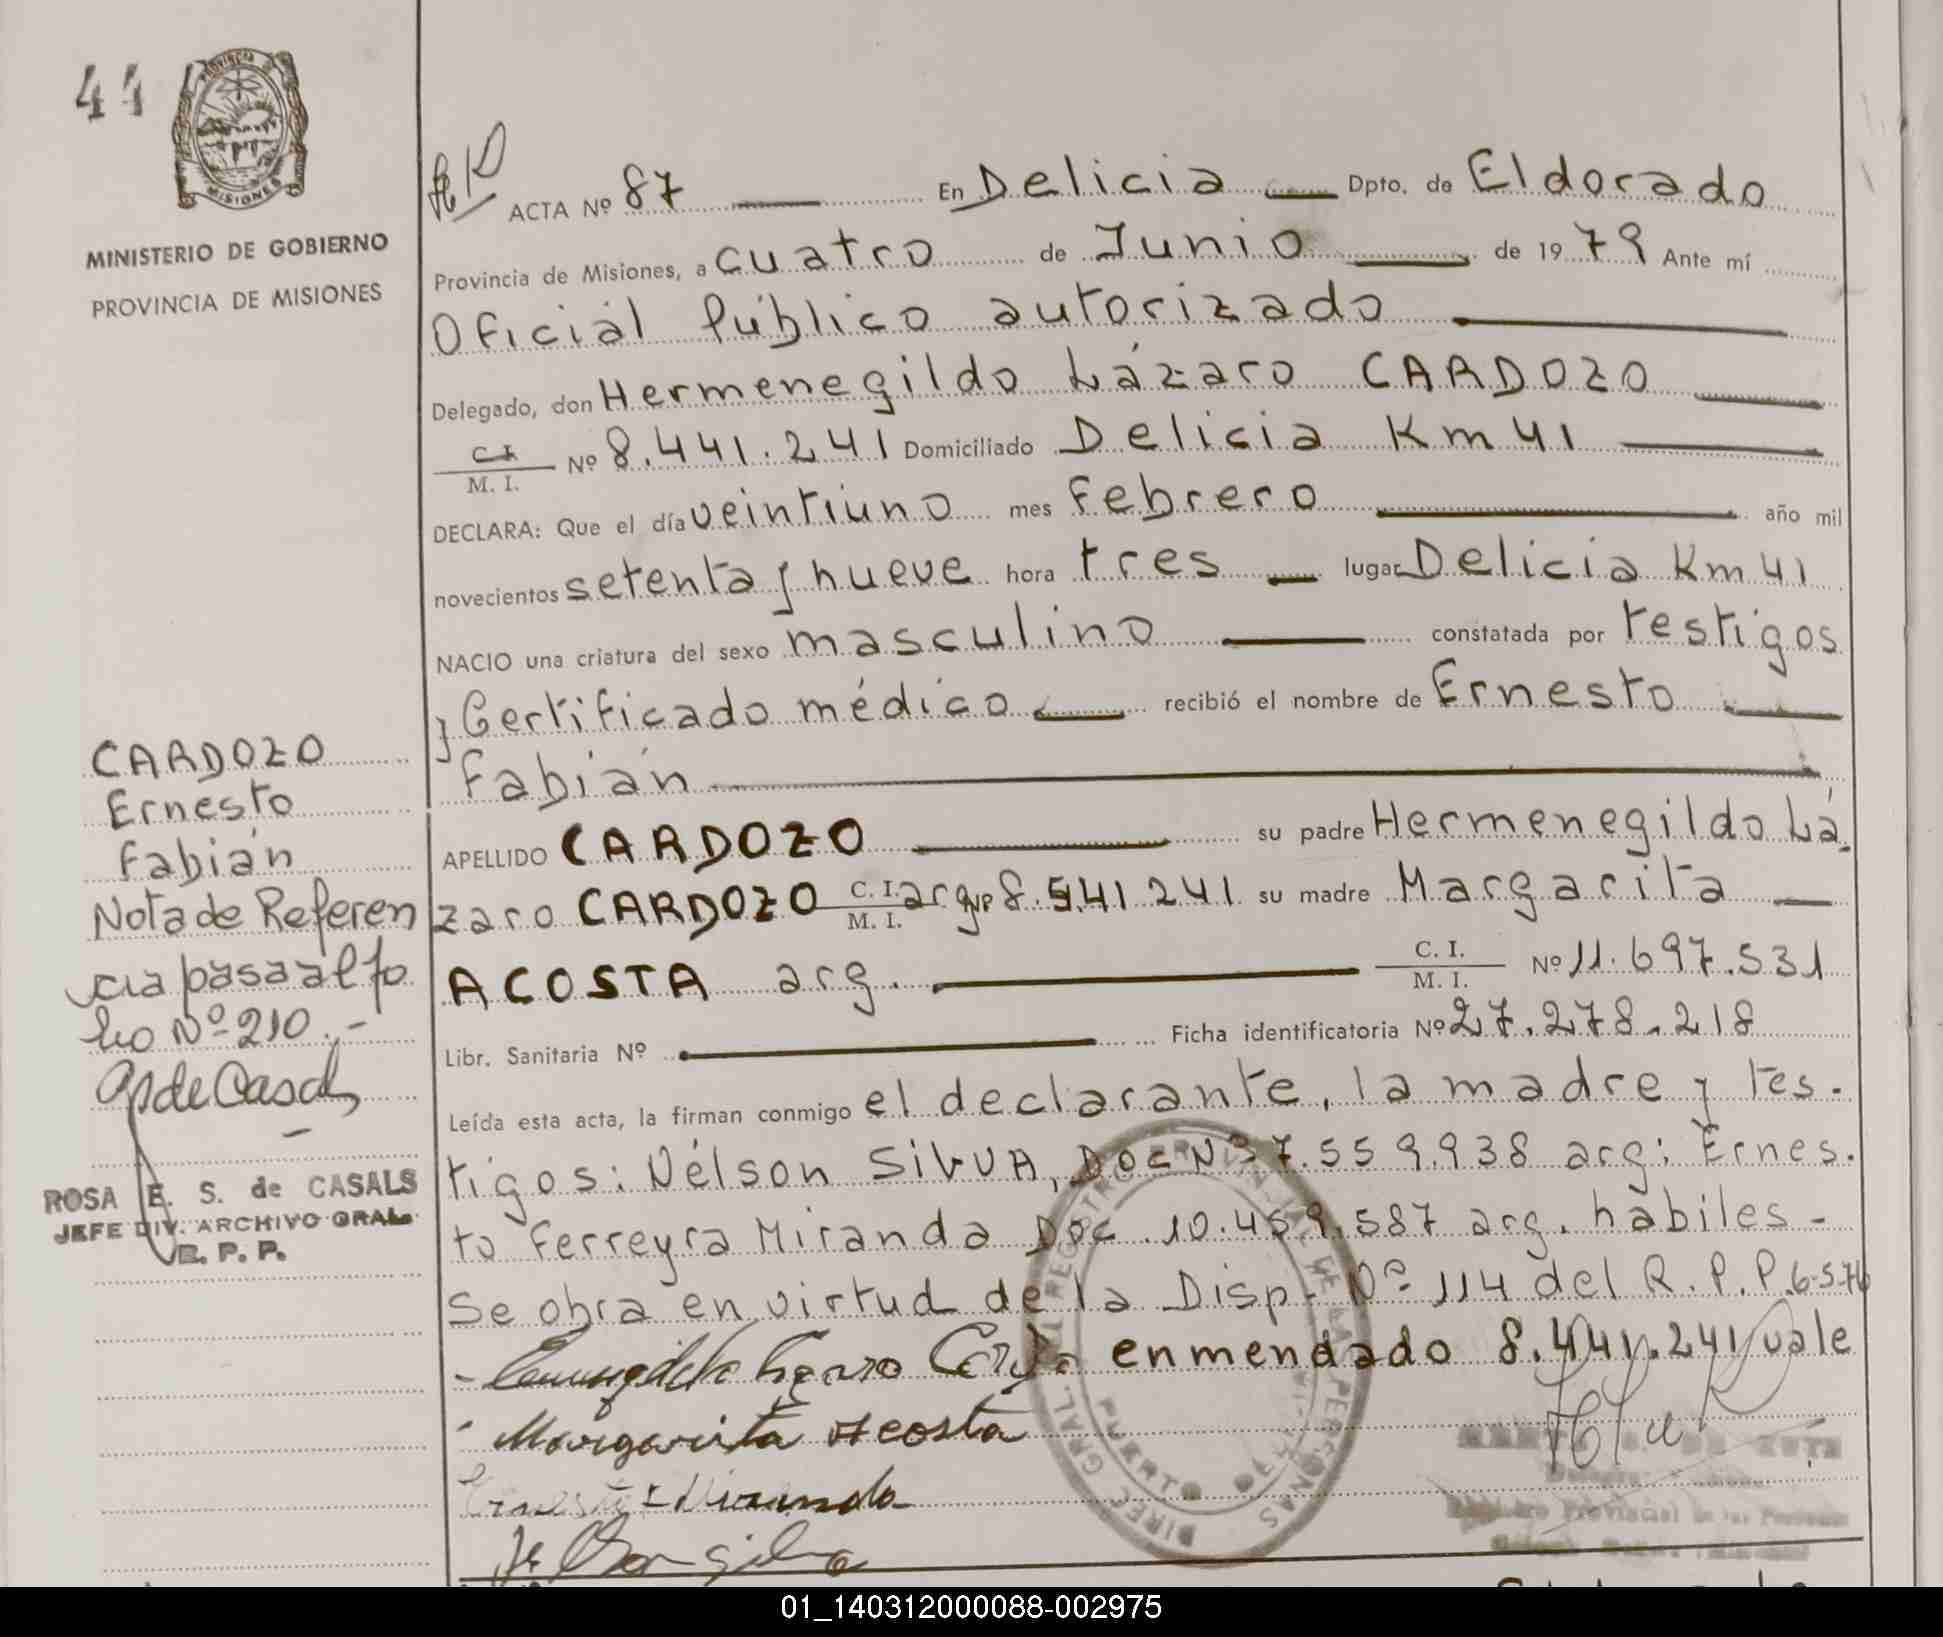 44
Provincia de
MISIONES
MINISTERIO DE GOBIERNO
PROVINCIA DE MISIONES
ACTA Nº 87 En Delicia Dpto. de Eldorado
Provincia de Misiones, a cuatro de Junio de 1979 Ante mí
Oficial Público autorizado
Delegado, don Hermenegildo Lázaro CARDOZO
C.I. M. I. Nº 8.441.241 Domiciliado Delicia Km 41
DECLARA: Que el día veintiuno mes Febrero año mil
novecientos setenta y nueve hora tres lugar Delicia Km 41
NACIO una criatura del sexo masculino constatada por testigos
y Certificado médico recibió el nombre de Ernesto
Fabián
APELLIDO CARDOZO su padre Hermenegildo Lá
zaro CARDOZO C. I. M. I. arg Nº 8.441.241 su madre Margarita
ACOSTA arg. C. I. M. I. Nº 11.697.531
Libr. Sanitaria Nº Ficha identificatoria Nº 27.278.218
Leída esta acta, la firman conmigo el declarante, la madre y tes.
tigos: Nélson SILVA, Doc Nº 7.559.938 arg: Ernes.
to Ferreyra Miranda Doc. 10.459.587 arg. hábiles -
Se obra en virtud de la Disp. Nº 114 del R.P.P. 6-5-76
enmendado 8.441.241 vale
Margarita Acosta
Miranda
CARDOZO
Ernesto
Fabián
Nota de Referen
cia pasa al fo
lio Nº 210.-
ROSA E. S. de CASALS
JEFE DIV. ARCHIVO GRAL.
R. P. P.
PUERTO
01_140312000088-002975